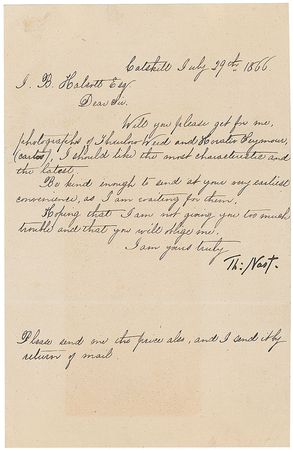 Catskill July 29th 1866.
J. B. Halsott Esq
Dear Sir.
Will you please get for me,
photographs of Thurlow Weed and Horatio Seymour,
(cartes), I should like the most characteristic and
the latest.
Be kind enough to send at your very earliest
convenience, as I am waiting for them.
Hoping that I am not giving you too much
trouble and that you will oblige me.
I am yours truly
Th: Nast.
Please send me the price also, and I send it by
return of mail.